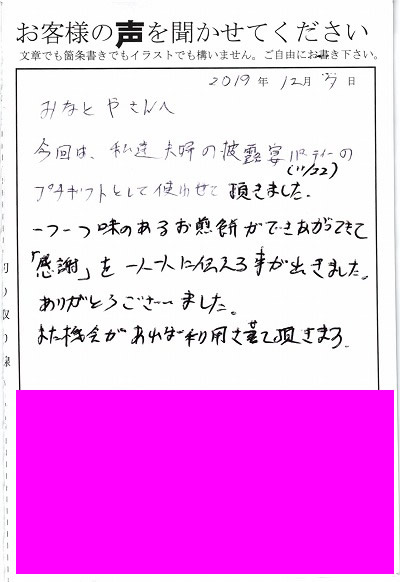 お客様の声を聞かせてください
文章でも箇条書きでもイラストでも構いません。ご自由にお書き下さい。
2019年 12月 日
おなとやさんへ
今回は、私達夫婦の披露宴パーティーの
(11/22)
プチギフトとして使わせて頂きました。
一つ一つ味のあるお煎餅ができあがてきて
「感謝」を一人一人に伝える事が出きました。
ありがとうございました。
また機会があれば利用させて頂きます。
切り取り線